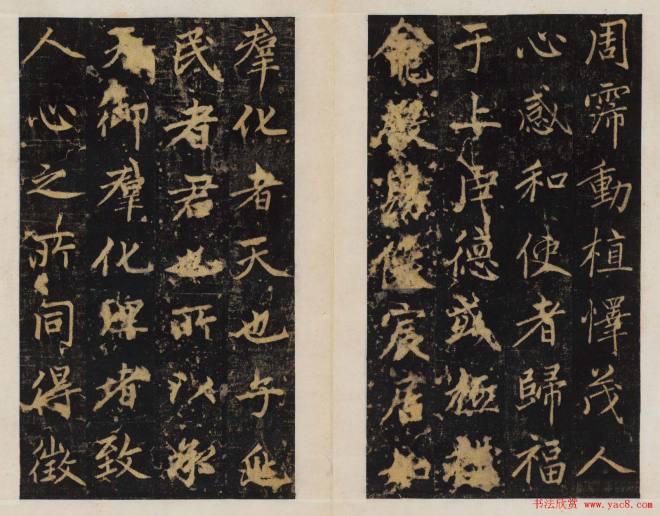 周霈動植懌茂人
心感和使者歸福
于上 德 極
宸居如
羣化者天也 
民者君也所以承
天御羣化 堵致
人心之所同得徵
书法欣赏 www.yac8.com